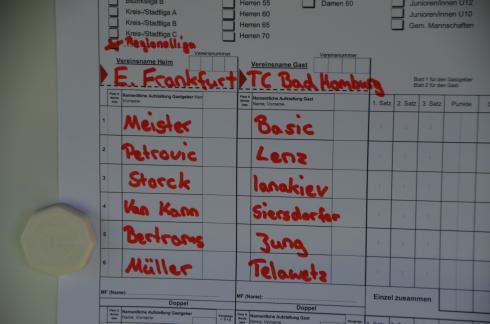 Bezirksliga B
Kreis-/Stadtliga A
Kreis-/Stadtliga B
Kreis-/Stadtliga C
Regionalliga
Herren 55
Herren 60
Herren 65
Herren 70
Damen 60
Junioren/innen U12
Junioren/innen U10
Gem. Mannschaften
Vereinsnummer
Vereinsname Heim
Vereinsnummer
Vereinsname Gast
E. Frankfurt
TC Bad Homburg
Blatt 1 für den Gastgeber
Blatt 2 für den Gast
Namentliche Aufstellung Gastgeber
Name, Vorname
Namentliche Aufstellung Gast
Name, Vorname
1. Satz 2. Satz 3. Satz Punkte
1 Meister Basic
2 Petrovic Lenz
3 Storck Ianakiev
4 Van Kann Siersdorfer
5 Bertrams Jung
6 Müller Telawetz
MF (Name):
MF (Name):
Einzel zusammen
Doppel
Doppel
Namentliche Aufstellung Gastgeber
Name, Vorname
Namentliche Aufstellung Gast
Name, Vorname